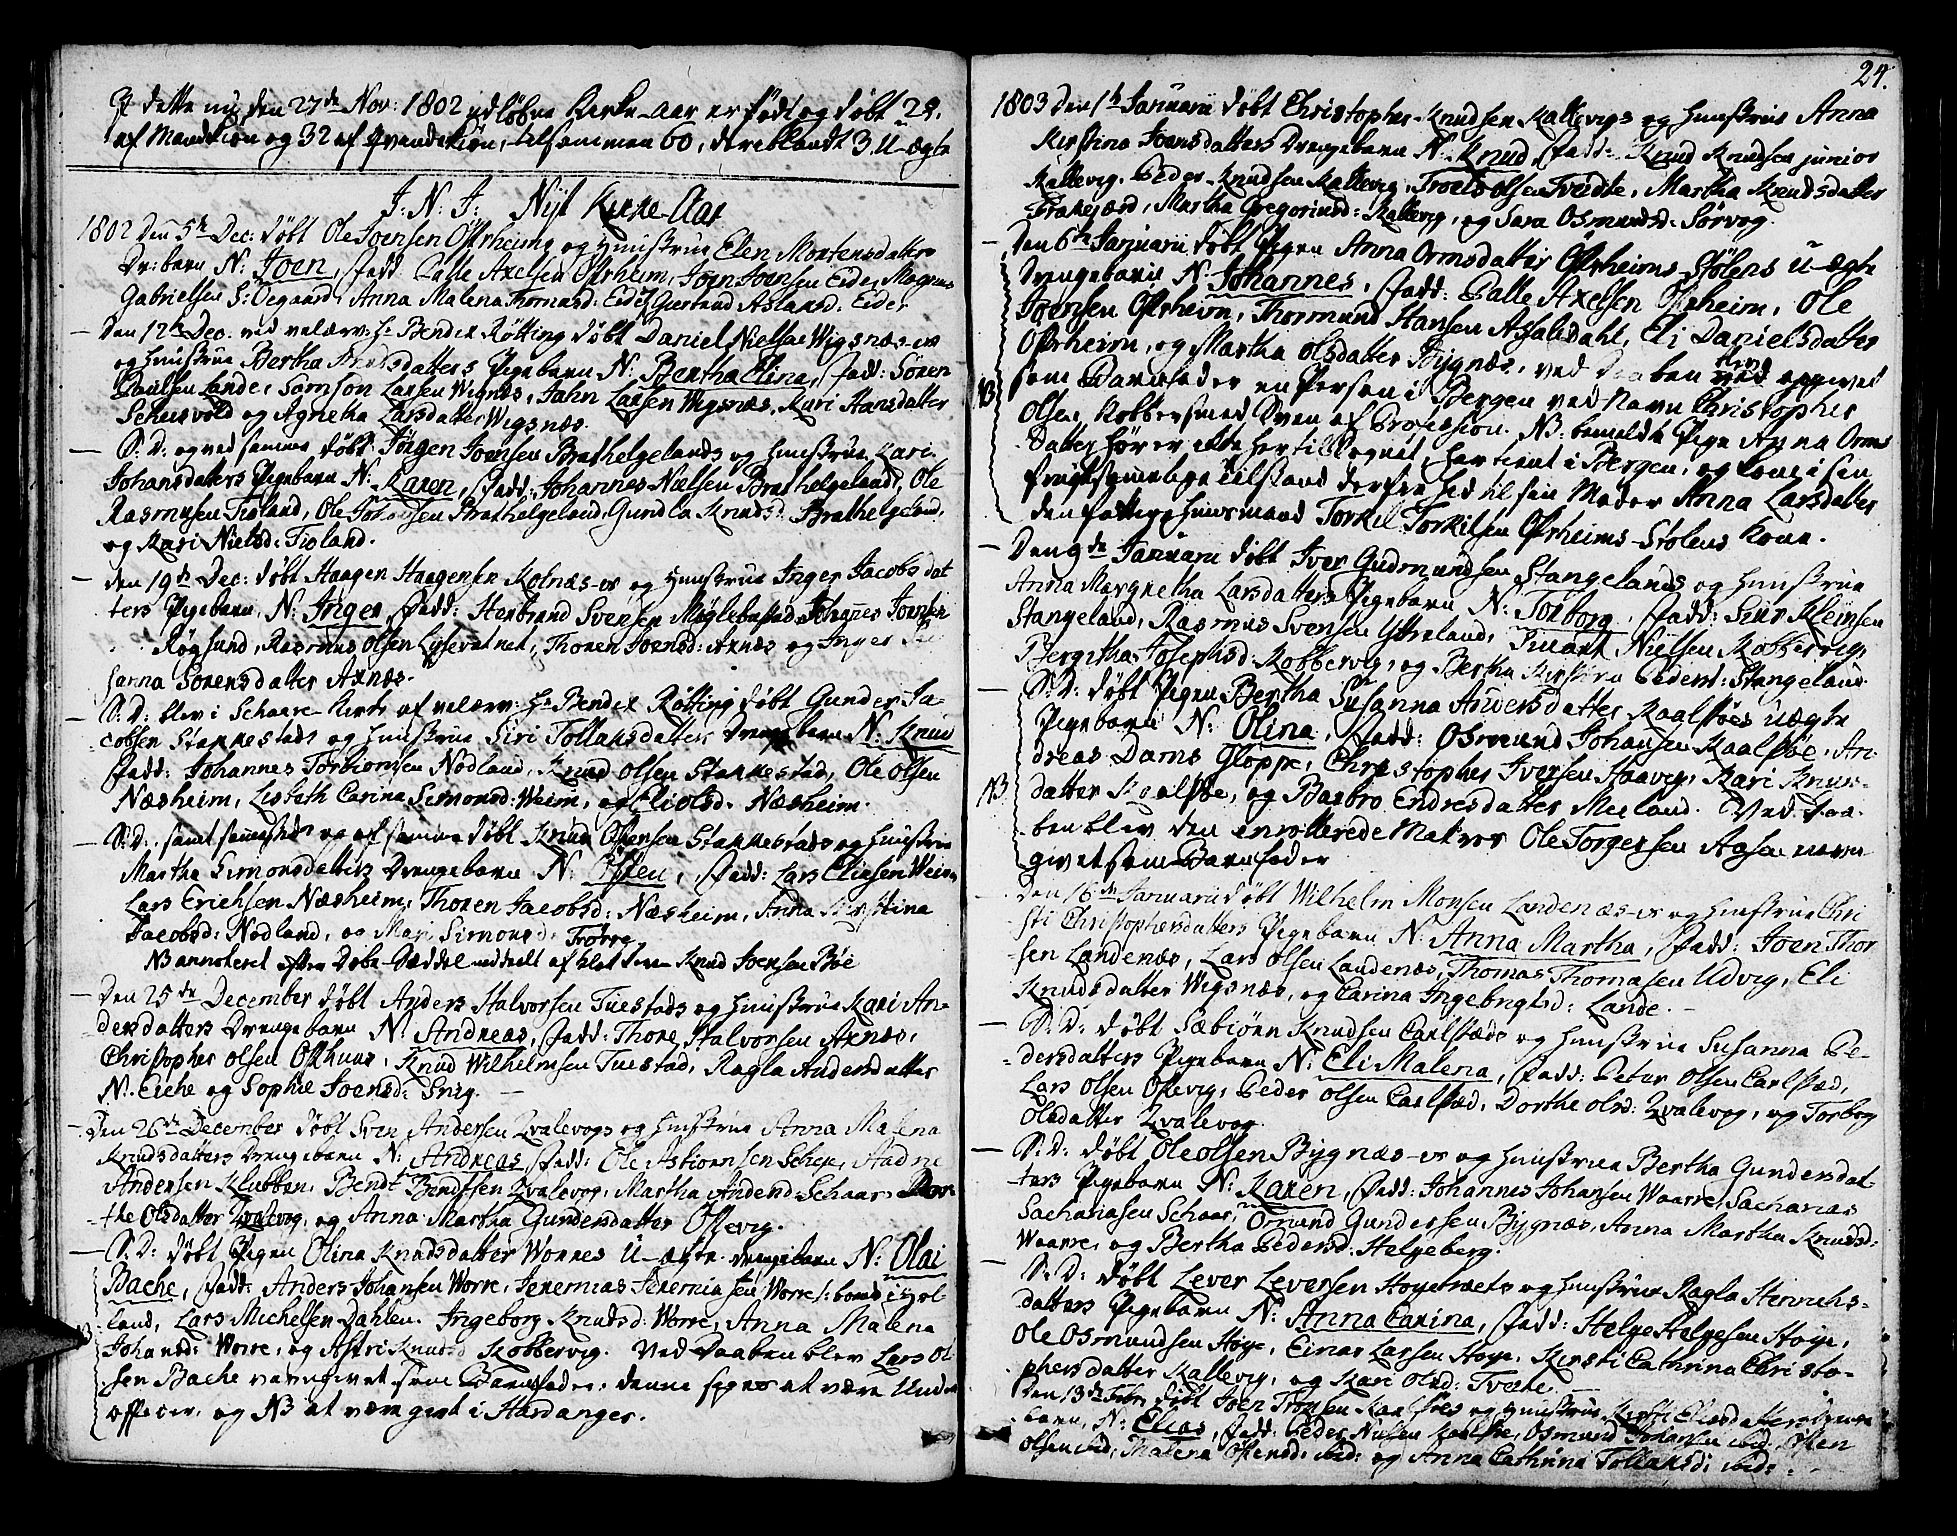 I dette nu den 27de Nov: 1802 udløbne Kirke-Aar er født og døbt 28.
af Mandkiøn og 32 af Qvindekiøn, tilsammen 60, dereblandt 3 U-ægte
J: N: J: Nyt Kirke-Aar
1802 Den 5te Dec: døbt Ole Joensen Østrheims og Hustrue Elen Mortensdatters
Dr: barn N: Joen, Fadd: Palle Axelsen Østrheim, Joen Joensen Eide, Magnus
Gabrielsen S: Øegaard, Anna Malena Thomasd: Eide, Giertrud Aslansd: Eide
Den 12te Dec. ved velærv: Hr Bendix Røtting døbt Daniel Nielsen Wigsnæs-es
og Hustrue Bertha Knudsdatters Pigebarn N: Bertha Elina, Fadd: Søren
Poulsen Lande, Samson Larsen Wigsnæs, Jahn Larsen Wigsnæs, Kari Hansdatter
Scheisvold og Agnetha Larsdatter Wigsnæs.
S: D: og ved samme døbt Jørgen Joensen Brathelgelands og Hustrue Kari
Johansdatters Pigebarn N: Karen, Fadd: Johannes Nielsen Brathelgeland, Ole
Rasmusen Fioland, Ole Johansen Brathelgeland, Gundla Knudsd: Brathelgeland,
og Kari Nielsd: Fioland.
Den 19de Dec: døbt Haagen Haagensen Kolnæs-es og Hustrue Inger Jacobsdat
ters Pigebarn, N: Inger, Fadd: Herbrand Svensen Møglebustad, Johannes Joensen
Røgsund, Rasmus Olsen Lysevatnet, Thoren Joensd: Axnæs og Inger
Sanna Sørensdatter Axnæs.
S: D: blev i Schaare-Kirke af velærv: Hr Bendix Røtting døbt Gunder Ja-
cobsen Stakkestads og Hustrue Siri Tollaksdatters Drengebarn N: Knud
Fadd: Johannes Torbiørnsen Nodland, Knud Olsen Stakkestad, Ole Olsen
Næsheim, Lisbeth Carina Simonsd: Weim, og Eli Olsd: Næsheim.
S: D: samt sammesteds og af samme døbt Knud Østensen Stakkestads og Hustrue
Martha Simonsdatters Drengebarn N: Østen, Fadd: Lars Eliesen Weim,
Lars Erichsen Næsheim, Thoren Jacobsd: Næsheim, Anna Kirstina
Jacobsd: Nodland, og Mari Simonsd: Trøvog
NB annoteret efter Døbe-Seddel meddeelt af Klokkeren Knud Joensen Bøe
Den 25de December døbt Anders Halvorsen Tuestads og Hustrue Kari An-
dersdatters Drengebarn N: Andreas, Fadd: Thore Halvorsen Axnæs,
Christopher Olsen Østhuus, Knud Wilhelmsen Tuestad, Ragla Andersdatter
N: Eiche og Sophie Joensd: Snig.
Den 26de December døbt Sven Andersen Qvalevogs og Hustrue Anna Malena
Knudsdatters Drengebarn N: Andreas, Fadd: Ole Asbiørnsen Scheie, Aadne
Andersen Klubben, Bendt Bendtsen Qvalevog, Martha Andersd Schaar,
the Olsdatter Qvalevog, og Anna Martha Gundersdatter Østevig.
S: D: døbt Pigen Olina Knudsdatter Worres U-ægte drengebarn N: Olai
Bache, Fadd: Anders Johansen Worre, Jeremias Jeremiasen Worre /: boend i Hol
land, Lars Michelsen Dahlen. Ingeborg Knudsd: Worre, Anna Malena
Johansd: Worre, og Astri Knudsd Kobbervig. Ved Daaben blev Lars Ol
sen Bache var angivet som Barnefader, denne siges at være Under
officeer, og NB at være gift i Hardanger.
24.
1803 Den 1te Januarii døbt Christopher Knudsen Kallevigs og Hustrue Anna
Kirstina Joensdatters Drengebarn N: Knud, Fadd: Knud Knudsen junior
Kallevig, Peder Knudsen Kallevig, Troels Olsen Tvedte, Martha Knudsdatter
Frakefiord, Martha Gregoriusd: Kallevig, og Sara Osmundsd: Sørvog.
Den 6te Januarii døbt Pigen Anna Ormsdatter Østrheims-Stølens U-ægte
Drengebarn N: Johannes, Fadd: Palle Axelsen Østrheim, Ole
Joensen Østrheim, Thormund Hansen Assalsdahl, Eli Danielsdatter
Østrheim, og Martha Olsdatter Bygnæs, ved Daaben blev opgivet
NB som Barnefader en Person i Bergen ved Navn Christopher
Olsen, Kobbersmed Svend af Profession. NB: bemeldte Pige Anna Orms
datter hører ikke her til Sognet, har tient i Bergen, og kom i sin
frugtsommelige Tilstand derfra hid til sin Moder Anna Larsdatter
den fattige Huusmand Torkel Torkilsen Østrheims-Stølens Kone.
Den 9de Januarii døbt Iver Gudmundsen Stangelands og Hustrue
Anna Margretha Larsdatters Pigebarn N: Torborg, Fadd: Siur Kleinsen
Stangeland, Rasmus Svensen Ytreland, Tui Nielsen Kobbervig,
Bergitha Josephsd Kobbervig, og Bertha Kirstina Pedersd: Stangeland
S: D: døbt Pigen Bertha Susanna Andersdatter Kaalstøes Uægte
Pigebarn N: Olina, Fadd: Osmund Johansen Kaalstøe, An
dreas Dams Gloppe, Christopher Iversen Haavig, Kari Knuds-
NB datter Kaalstøe, og Barbro Endresdatter Meeland. Ved Daa-
ben blev den enrollerede Matros Ole Torgersen Aasen navn
givet som Barnefader
Den 16de Januarii døbt Wilhelm Monsen Landenæs-es og Hustrue Chri
sti Christophersdatters Pigebarn N: Anna Martha, Fadd: Joen Thor
sen Landenæs, Lars Olsen Landenæs, Thomas Thomasen Udvig, Eli
Knudsdatter Wigsnæs, og Carina Ingebrigtsd: Lande.
S: D: døbt Sæbiørn Knudsen Carlstæds og Hustrue Susanna Pe-
dersdatters Pigebarn N: Eli Malena, Fadd: Peter Olsen Carlstæd,
Lars Olsen Østevig, Peder Olsen Carlstæd, Dorthe Olsd: Qvalevog, og Torborg
Olsdatter Qvalevog.
S: D: døbt Ole Olsen Bygnæs-es og Hustrue Bertha Gundersdat-
ters Pigebarn N: Karen, Fadd: Johannes Johansen Waarre, Sacharias
Sachariasen Schaar, Omund Gundersen Bygnæs, Anna Martha Knudsd:
Waarre, og Bertha Pedersd: Helgeberg.
S: D: døbt Lever Leversen Høyebraets og Hustrue Ragla Henrichs-
datters Pigebarn N: Anna Carina, Fadd: Helge Helgesen Høye,
Ole Osmundsen Høye, Einar Larsen Høye, Kirsti Cathrina Christo-
phersdatter Kallevig, og Kari Olsd: Tvedte.
Den 13de Febr: døbt Joen Troelsen Kaalstøes og Hustrue Kirsti Eliedatters Drenge
barn, N: Elias, Fadd: Peder Nielsen Kaalstøe, Osmund Johansen ibid: Østen
Olsen ibid, Malena Østensd: ibid: og Anna Cathrina Tollaksd: ibid: